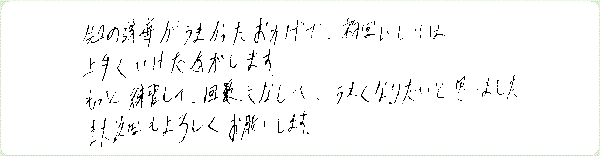 先生の誘導がうまかったおかげで、初回にしては
上手くいけた気がします
もっと練習して、回数をこなして、うまくなりたいと思いました
また次回もよろしくお願いします